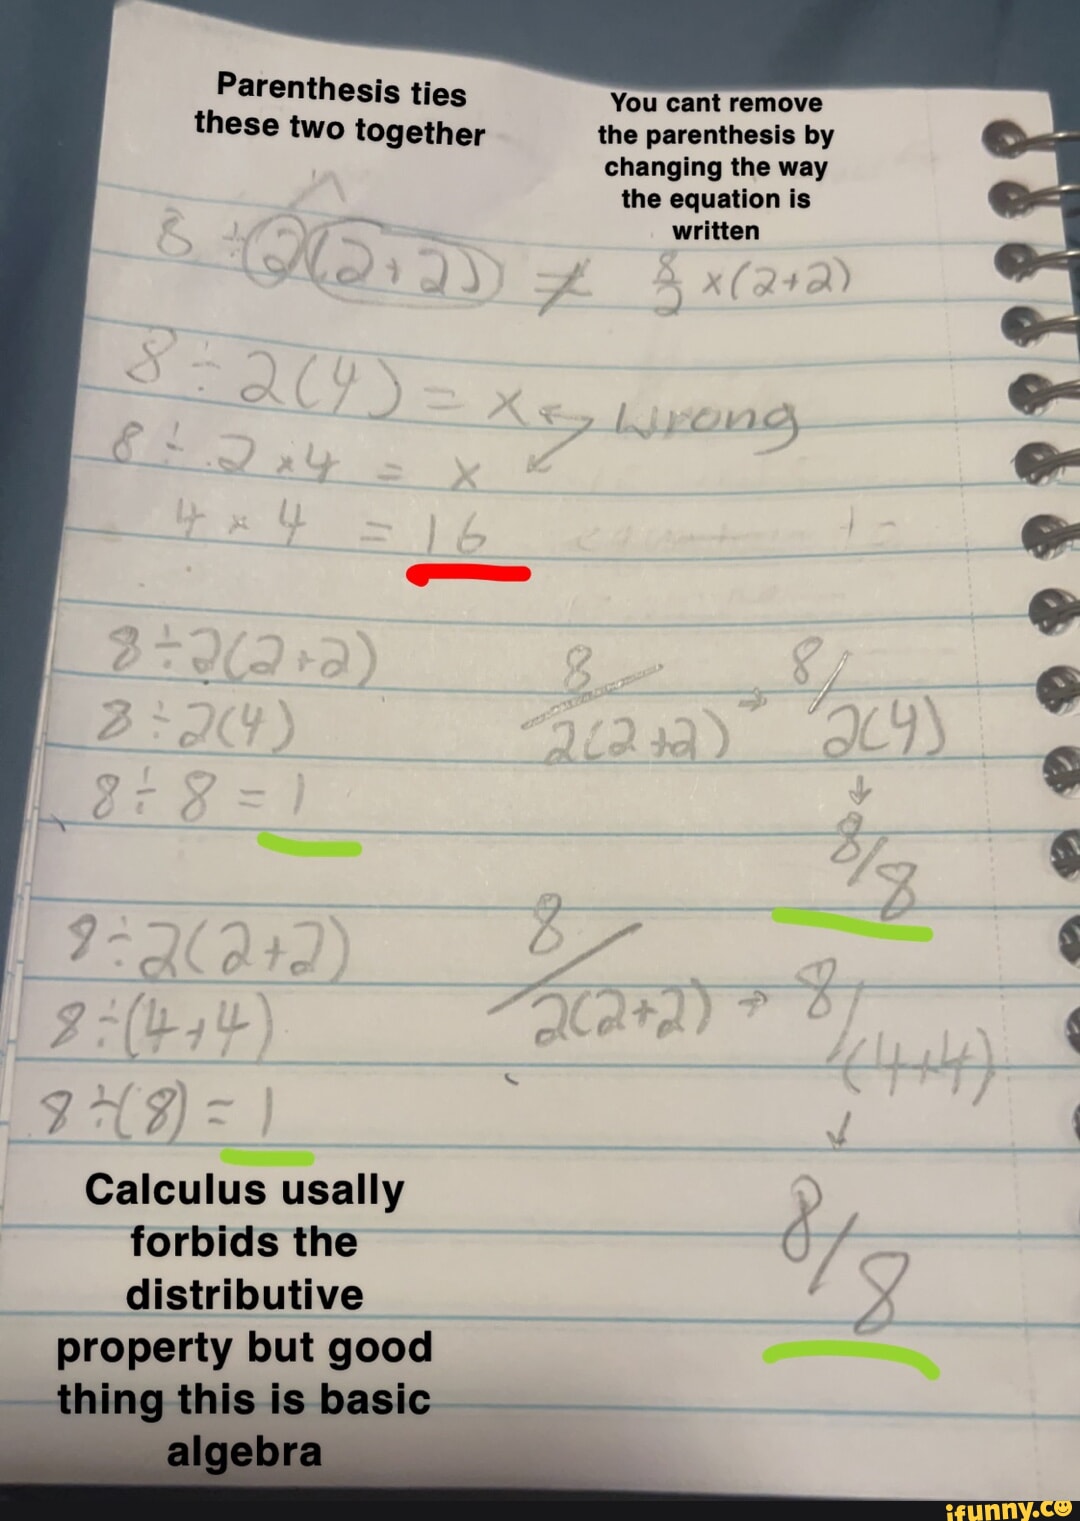 Parenthesis ties
these two together
You cant remove
the parenthesis by
changing the way
the equation is
written
8 ÷ 2(2+2) ≠ 8/2 ×(2+2)
8 ÷ 2(4) = x ← wrong
8 ÷ 2 × 4 = x
4 × 4 = 16
8÷2(2+2)
8÷2(4)
8÷8 = 1
8/2(2+2) → 8/2(4)
↓
8/8
8÷2(2+2)
8÷(4+4)
8÷(8) = 1
8/2(2+2) → 8/(4+4)
↓
8/8
Calculus usally
forbids the
distributive
property but good
thing this is basic
algebra
ifunny.co